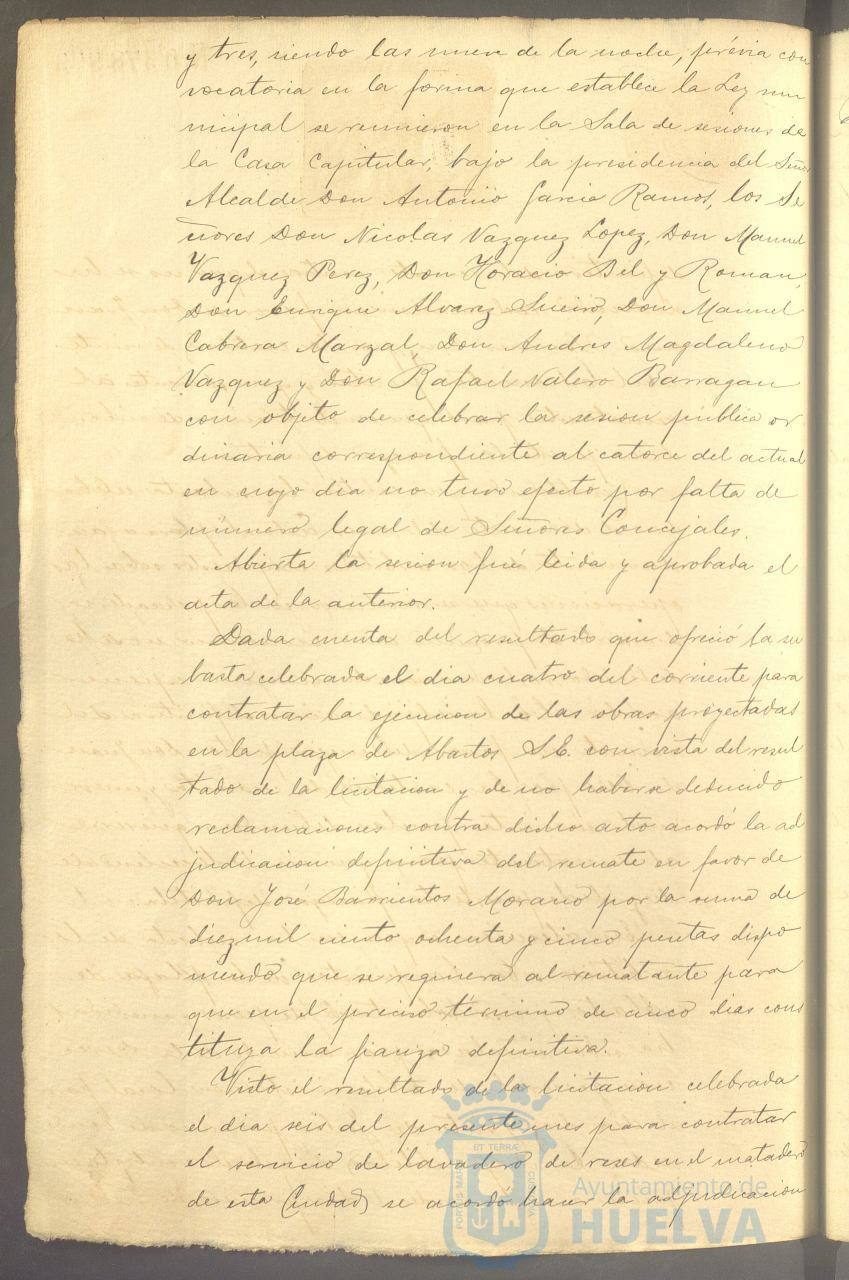 y tres, siendo las nueve de la noche, prévia con
vocatoria en la forma que establece la Ley mu
nicipal se reunieron en la Sala de sesiones de
la Casa Capitular, bajo la presidencia del Señor
Alcalde Don Antonio Garcia Ramos, los Se
ñores Don Nicolas Vazquez Lopez, Don Manuel
Vazquez Perez, Don Horacio Bel y Roman,
Don Enrique Alvarez Sueiro, Don Manuel
Cabrera Marzal, Don Andres Magdaleno
Vazquez y Don Rafael Valero Barragan
con objeto de celebrar la sesion pública or
dinaria correspondiente al catorce del actual
en cuyo dia no tuvo efecto por falta de
número legal de Señores Concejales.
Abierta la sesion fué leida y aprobada el
acta de la anterior.
Dada cuenta del resultado que ofreció la su
basta celebrada el dia cuatro del corriente para
contratar la ejecucion de las obras proyectadas
en la plaza de Abastos S.E. con vista del resul
tado de la licitacion y de no haberse deducido
reclamaciones contra dicho acto acordó la ad
judicacion definitiva del remate en favor de
Don José Barrientos Morano por la suma de
diez mil ciento ochenta y cinco pesetas dispo
niendo que se requiera al rematante para
que en el preciso término de cinco dias cons
tituya la fianza definitiva.
Visto el resultado de la licitacion celebrada
el dia seis del presente mes para contratar
el servicio de lavadero de reses en el matadero
de esta Ciudad, se acordó hacer la adjudicacion
PORTUS MARIS ET TERRÆ CUSTODIA
Ayuntamiento de
HUELVA